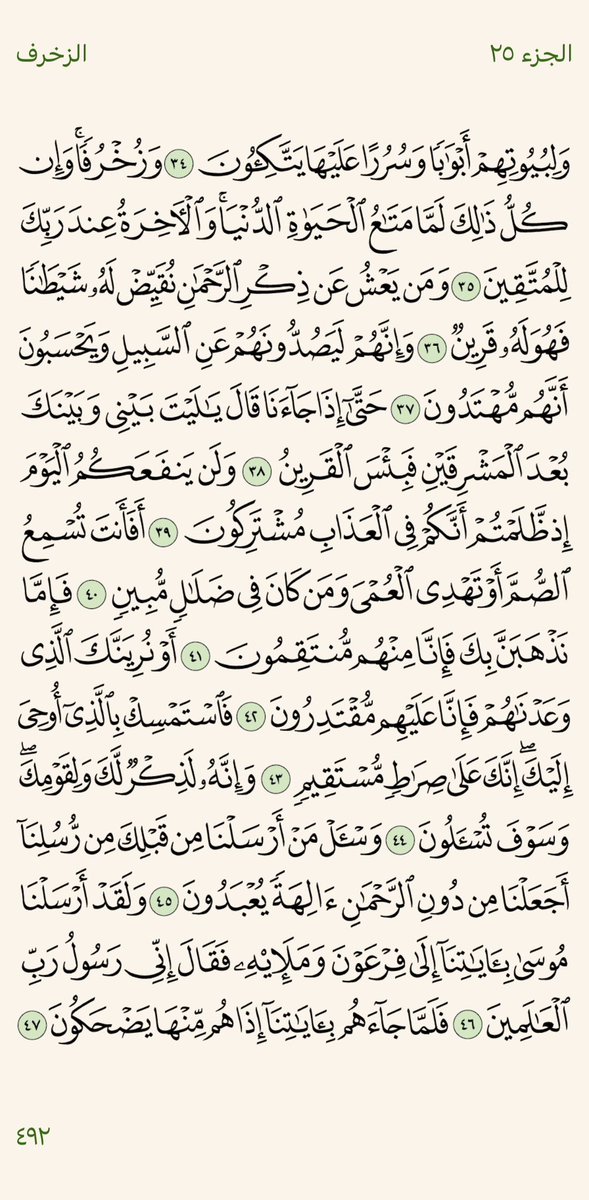 الجزء ٢٥
الزخرف
وَلِبُيُوتِهِمْ أَبْوَٰبًا وَسُرُرًا عَلَيْهَا يَتَّكِـُٔونَ ٣٤ وَزُخْرُفًا ۚ وَإِن
كُلُّ ذَٰلِكَ لَمَّا مَتَٰعُ ٱلْحَيَوٰةِ ٱلدُّنْيَا ۚ وَٱلْـَٔاخِرَةُ عِندَ رَبِّكَ
لِلْمُتَّقِينَ ٣٥ وَمَن يَعْشُ عَن ذِكْرِ ٱلرَّحْمَٰنِ نُقَيِّضْ لَهُۥ شَيْطَٰنًا
فَهُوَ لَهُۥ قَرِينٌ ٣٦ وَإِنَّهُمْ لَيَصُدُّونَهُمْ عَنِ ٱلسَّبِيلِ وَيَحْسَبُونَ
أَنَّهُم مُّهْتَدُونَ ٣٧ حَتَّىٰٓ إِذَا جَآءَنَا قَالَ يَٰلَيْتَ بَيْنِى وَبَيْنَكَ
بُعْدَ ٱلْمَشْرِقَيْنِ فَبِئْسَ ٱلْقَرِينُ ٣٨ وَلَن يَنفَعَكُمُ ٱلْيَوْمَ
إِذ ظَّلَمْتُمْ أَنَّكُمْ فِى ٱلْعَذَابِ مُشْتَرِكُونَ ٣٩ أَفَأَنتَ تُسْمِعُ
ٱلصُّمَّ أَوْ تَهْدِى ٱلْعُمْىَ وَمَن كَانَ فِى ضَلَٰلٍ مُّبِينٍ ٤٠ فَإِمَّا
نَذْهَبَنَّ بِكَ فَإِنَّا مِنْهُم مُّنتَقِمُونَ ٤١ أَوْ نُرِيَنَّكَ ٱلَّذِى
وَعَدْنَٰهُمْ فَإِنَّا عَلَيْهِم مُّقْتَدِرُونَ ٤٢ فَٱسْتَمْسِكْ بِٱلَّذِىٓ أُوحِىَ
إِلَيْكَ ۖ إِنَّكَ عَلَىٰ صِرَٰطٍ مُّسْتَقِيمٍ ٤٣ وَإِنَّهُۥ لَذِكْرٌ لَّكَ وَلِقَوْمِكَ ۖ
وَسَوْفَ تُسْـَٔلُونَ ٤٤ وَسْـَٔلْ مَنْ أَرْسَلْنَا مِن قَبْلِكَ مِن رُّسُلِنَآ
أَجَعَلْنَا مِن دُونِ ٱلرَّحْمَٰنِ ءَالِهَةً يُعْبَدُونَ ٤٥ وَلَقَدْ أَرْسَلْنَا
مُوسَىٰ بِـَٔايَٰتِنَآ إِلَىٰ فِرْعَوْنَ وَمَلَإِي۟هِۦ فَقَالَ إِنِّى رَسُولُ رَبِّ
ٱلْعَٰلَمِينَ ٤٦ فَلَمَّا جَآءَهُم بِـَٔايَٰتِنَآ إِذَا هُم مِّنْهَا يَضْحَكُونَ ٤٧
٤٩٢